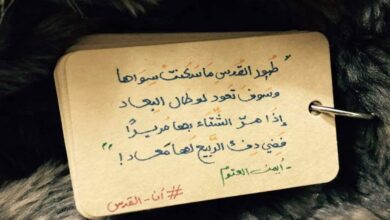 "طيور القُدسِ مَا سَكَنتْ سِوَاها
وسَوف تَعود لو طال البِعاد
إذَا مرّ الشّتاء بها مَريرًا
فَفي دِفءِ الرَّبيع لها مَعاد!"
- أيمن العتوم
#أنا-القدس